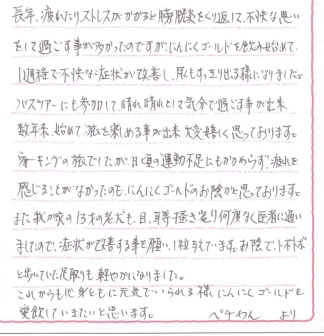 長年、疲れたり、ストレスがかかると膀胱炎をくり返して、不快な思い
をして過ごす事が多かったのですが、にんにくゴールドを飲み始めて、
1週程で不快な症状が改善し、尿もすっきり出る様になりました。
バスツアーにも参加して、晴れ晴れとして気分で過ごす事が出来
数年来、始めて旅を楽しめる事が出来大変嬉しく思っております。
ウォーキングの旅でしたが、日頃の運動不足にもかかわらず、疲れを
感じることがなかったのも、にんにくゴールドのお陰かと思っております。
また我が家の13才の老犬も、目、耳等掻き何度なく医者に通い
ましたので、症状が改善する事を願い、1粒与えています。お陰で、トボトボ
と歩いていた足取りも軽やかになりました。
これからも心身ともに元気でいられる様にんにくゴールドを
愛飲していきたいと思います。
ペチャわん より